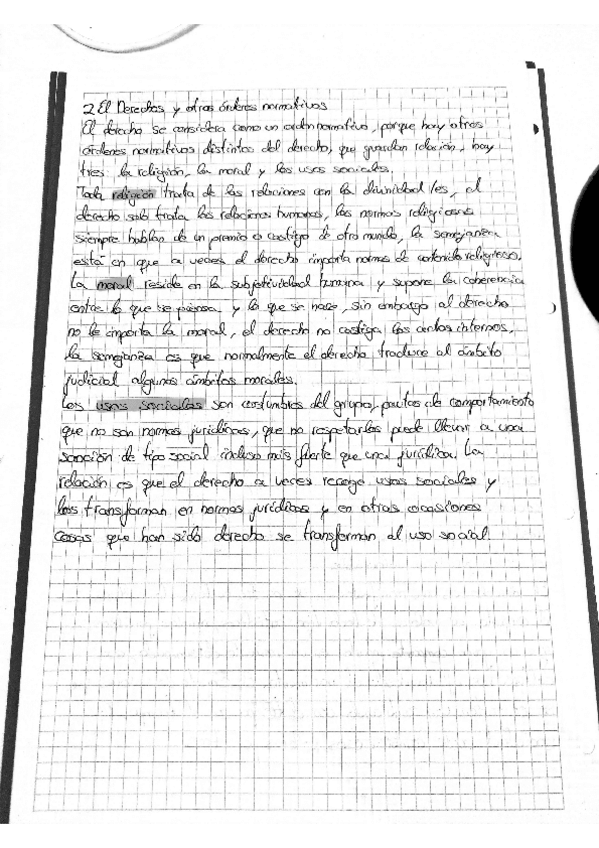 2 El Derechos y otros órdenes normativos
El derecho se considera como un orden normativo, porque hay otros
órdenes normativos distintos del derecho, que guardan relación, hay
tres la religión, la moral y los usos sociales.
Toda religión trata de las relaciones con la divinidad/es, el
derecho solo trata las relaciones humanas, las normas religiosas
siempre hablan de un premio o castigo de otro mundo, la semejanza
está en que a veces el derecho importa normas de contenido religioso.
La moral reside en la subjetividad humana y supone la coherencia
entre lo que se piensa y lo que se hace, sin embargo al derecho
no le importa la moral, el derecho no castiga los actos internos,
la semejanza es que normalmente el derecho traduce al ámbito
judicial algunos ámbitos morales.
Los usos sociales son costumbres del grupo, pautas de comportamiento
que no son normas jurídicas, que no respetarlos puede llevar a una
sanción de tipo social incluso más fuerte que una jurídica. La
relación es que el derecho a veces recoge usos sociales y
los transforman en normas jurídicas y en otras ocasiones
cosas que han sido derecho se transforman al uso social.